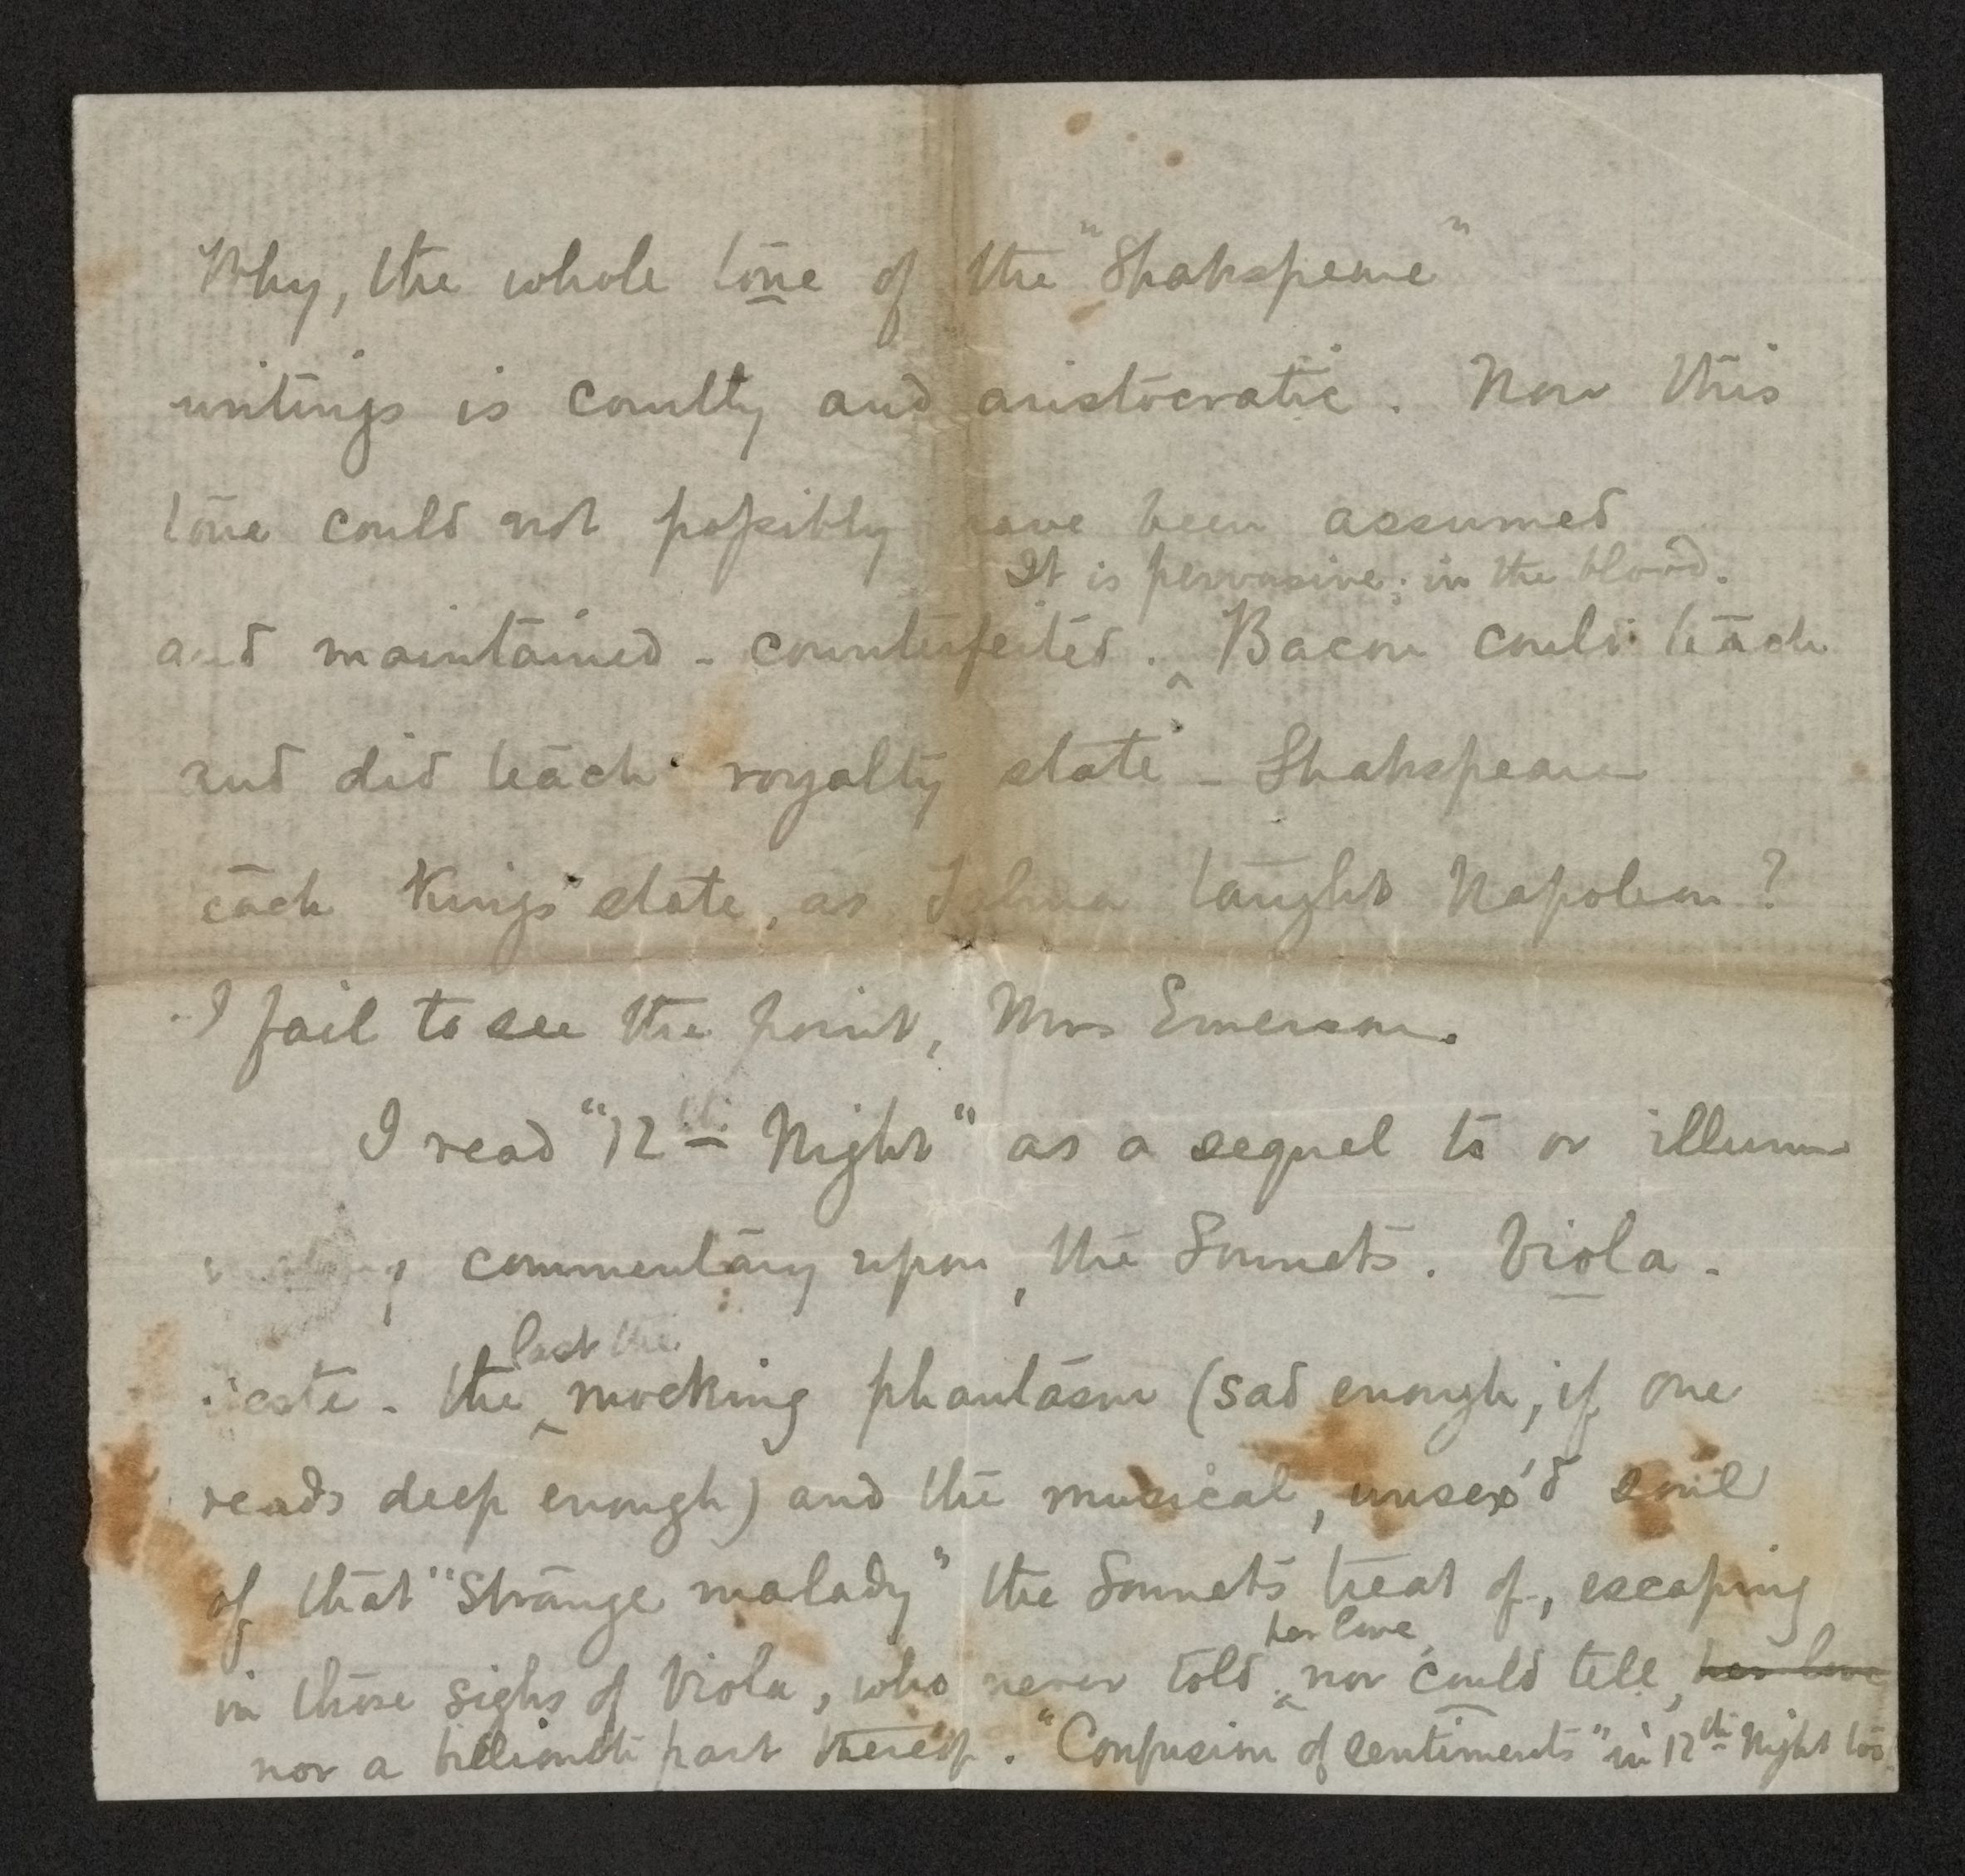 Why, the whole tone of the "Shakspeare"
writings is courtly and aristocratic. Now this
tone could not possibly have been assumed
It is pervasive: in the blood.
and maintained - counterfeited. ^ Bacon could teach
and did teach royalty state - Shakspeare
teach Kings state, as Talma taught Napoleon?
I fail to see the point, Mrs Emerson.
I read "12th Night" as a sequel to or illumi
commentary upon, the Sonnets. Viola -
Feste - the ^ mocking phantasm (sad enough, if one
reads deep enough) and the musical, unsex'd soul
of that "strange malady" the Sonnets treat of, escaping
her love,
in those sighs of Viola, who never told ^ nor could tell, her love
nor a billionth part thereof. "Confusion of sentiments" in 12th Night too.